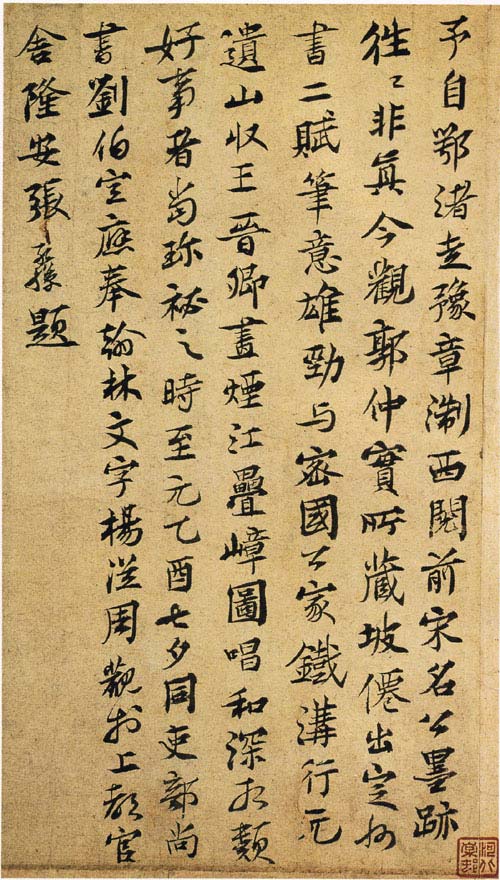 予自鄂渚走豫章淛西閱前宋名公墨跡
往〻非真今觀郭仲實所藏坡僊出定州
書二賦筆意雄勁与密國公家鐵溝行元
遺山收王晉卿畫煙江疊嶂圖唱和深相類
好事者當珎祕之時至元乙酉七夕同吏部尚
書劉伯宣應奉翰林文字楊從周觀於上都官
舍隆安張孫題